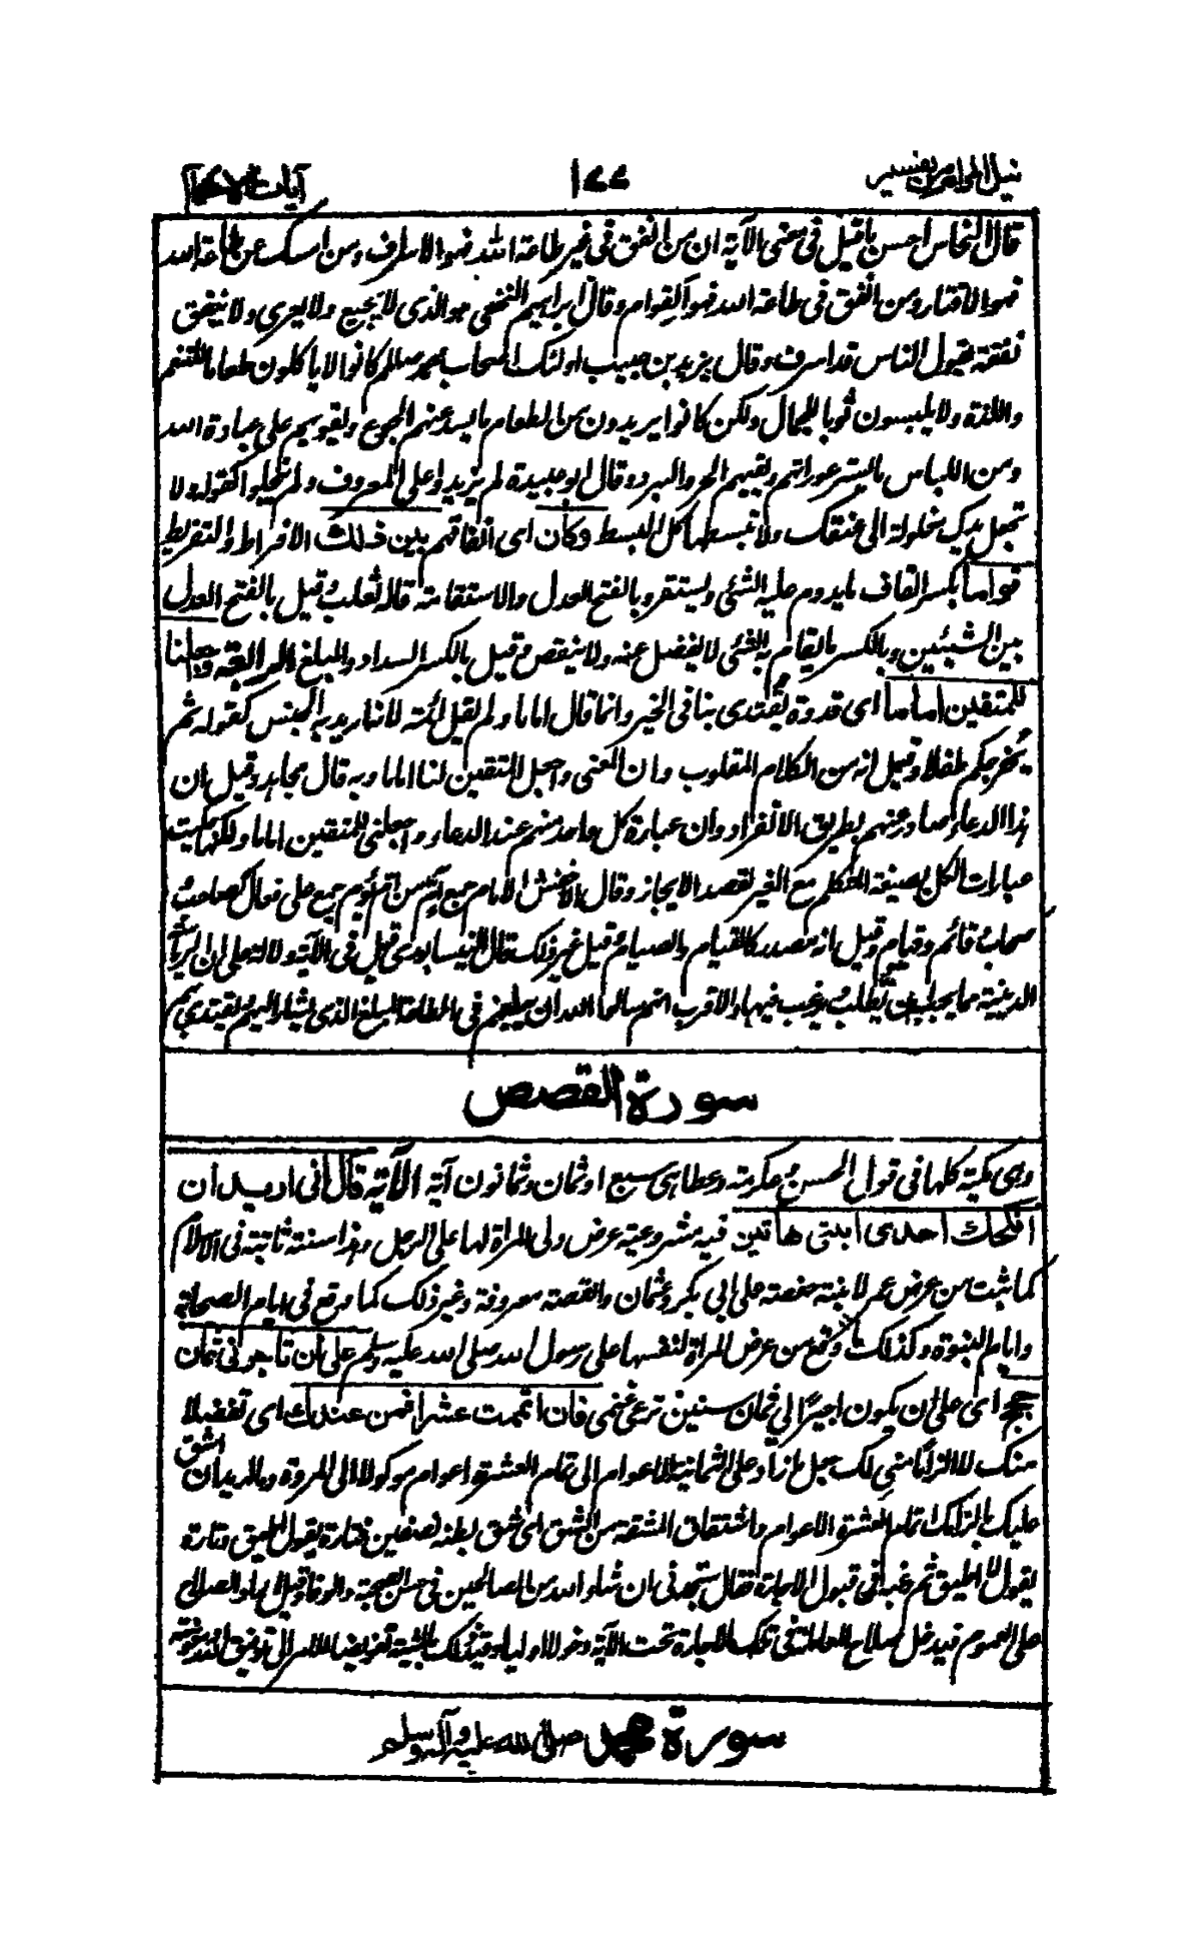 نيل المرام من تفسير
١٧٧
آيات الاحكام
قال النحاس احسن ما قيل فى معنى الآية ان من انفق فى غير طاعة الله فهو الاسراف ومن امسك عن طاعة الله
فهو الاقتار ومن انفق فى طاعة الله فهو القوام وقال ابراهيم النخعى هو الذى لا يجيع ولا يعرى ولا ينفق
نفقة يقول الناس قد اسرف وقال يزيد بن حبيب اولئك اصحاب محمد صللم كانوا لا ياكلون طعاما للتنعم
واللذة ولا يلبسون ثوبا للجمال ولكن كانوا يريدون من الطعام ما يسد عنهم الجوع ويقويهم على عبادة الله
ومن اللباس ما يستر عوراتهم ويقيهم الحر والبرد وقال ابو عبيدة لم يزيدوا على المعروف ولم يبخلوا كقوله ولا
تجعل يدك مغلولة الى عنقك ولا تبسطها كل البسط وكان اى انفاقهم بين ذلك الافراط والتفريط
قواما بكسر القاف ما يدوم عليه الشئ ويستقر وبالفتح العدل والاستقامة قاله ثعلب وقيل بالفتح العدل
بين الشيئين وبالكسر ما يقام به الشئ لا يفضل عنه ولا ينقص وقيل بالكسر السداد والمبلغ الرابعة وجعلنا
للمتقين اماما اى قدوة يقتدى بنا فى الخير وانما قال اماما ولم يقل ائمة لانه اريد به الجنس كقوله ثم
يخرجكم طفلا وقيل انه من الكلام المقلوب وان المعنى واجعل المتقين لنا اماما وبه قال مجاهد وقيل ان
هذا الدعاء صادر عنهم بطريق الانفراد وان عبارة كل واحد منهم عند الدعاء واجعلنى للمتقين اماما ولكنها حكيت
عبارات الكل بصيغة المتكلم مع الغير لقصد الايجاز وقال الاخفش الامام جمع آم من ام يوم جمع على فعال كصاحب
صحاب وقائم وقيام وقيل انه مصدر كالقيام والصيام وقيل غير ذلك قال النيسابورى قيل فى الآية دلالة على ان الرياسة
الدينية مما يجب ان تطلب ويرغب فيها والاقرب انهم سالوا الله ان يبلغهم فى الطاعة المبلغ الذى يشار اليهم ويقتدى بهم
سورة القصص
وهى مكية كلها فى قول الحسن وعكرمة وعطا هى سبع او ثمان وثمانون آية الآية قال انى اريد ان
انكحك احدى ابنتى هاتين فيه مشروعية عرض ولى المراة لها على الرجل وهذا سنة ثابتة فى الاسلام
كما ثبت من عرض عمر لابنته حفصة على ابى بكر وعثمان والقصة معروفة وغير ذلك كما وقع فى ايام الصحابة
وايام النبوة وكذلك ما وقع من عرض المراة لنفسها على رسول الله صلى الله عليه وسلم على ان تاجرنى ثمان
حجج اى على ان يكون اجيرًا لى ثمان سنين ترعى غنمى فان اتممت عشرا فمن عندك اى تفضلا
منك لا الزامًا منى لك جعل ما زاد على الثمانية الاعوام الى تمام العشرة اعوام موكولا الى المروة وما اريد ان اشق
عليك بالزامك اتمام العشرة الاعوام واشتقاق المشقة من الشق اى شق بطنه نصفين فتارة يقول اطيق وتارة
يقول لا اطيق ثم رغبه فى قبول الاجارة فقال ستجدنى ان شاء الله من الصالحين فى حسن الصحبة والوفا وقيل اراد الصلاح
على العموم فيدخل صلاح المعاملة فى تلك الاجارة تحت الآية دخولا اوليا وقيد ذلك بالمشية تفويضا للامر الى توفيق الله ومعونته
سورة محمد صلى الله عليه وآله وسلم